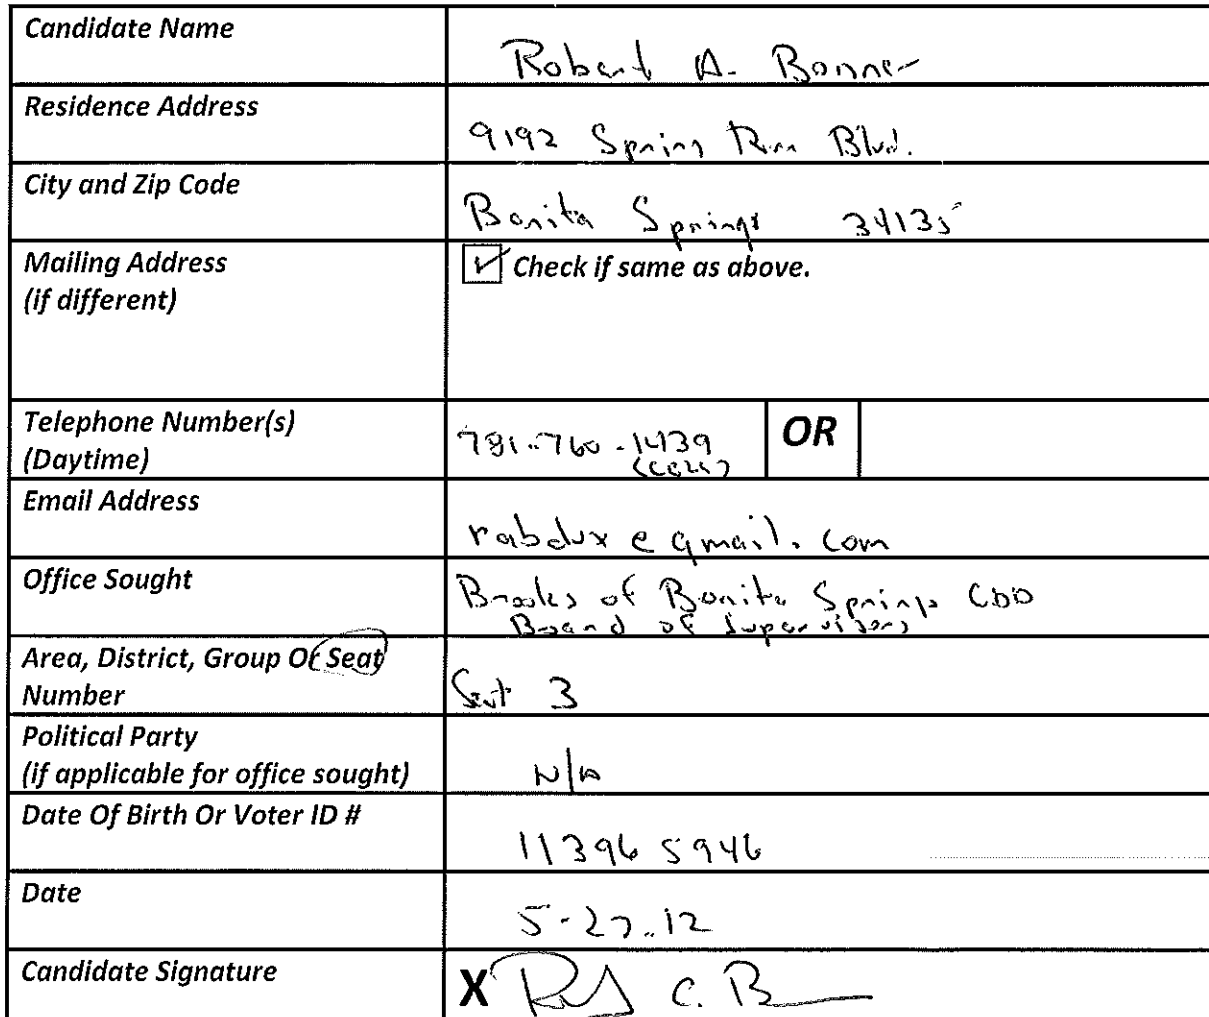 Candidate Name
Robert A. Bonner
Residence Address
9192 Spring Run Blvd.
City and Zip Code
Bonita Springs 34135
Mailing Address
(if different)
Check if same as above.
Telephone Number(s)
(Daytime)
781-760-1439
(CELL)
OR
Email Address
rabdux@gmail.com
Office Sought
Brooks of Bonita Springs CDD
Board of Supervisors
Area, District, Group Or Seat
Number
Seat 3
Political Party
(if applicable for office sought)
N/A
Date Of Birth Or Voter ID #
113965946
Date
5-27-12
Candidate Signature
X